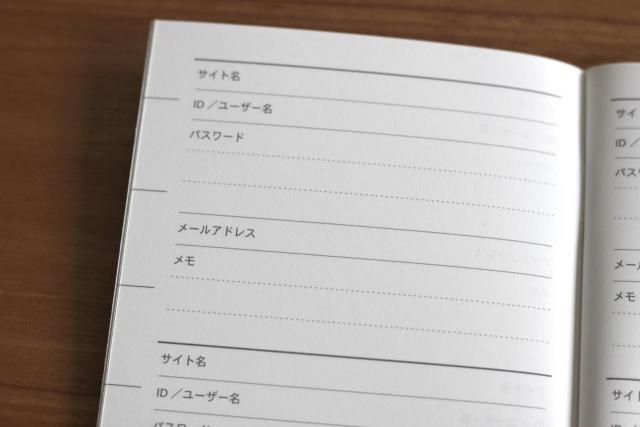 サイト名
ID／ユーザー名
パスワード
メールアドレス
メモ
サイト名
ID／ユーザー名
パスワード
サイ
ID／
パス
メール
メモ
サイト